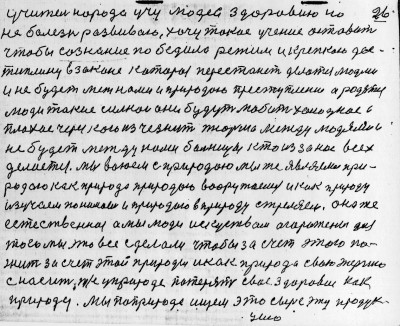 учител народа учу людей здоровию но 26.
не болезн развиваю, хочу такое учение оставит
чтобы сознание победило режим и крепкою дис-
типлину в законе которая перестанет делати людми
и не будет меж нами и природою преступления а родятся
люди такие силною они будут любит холодное и
плохое через кою изчезнит тюрма между людями и
не будет между нами болницы кто из за нас всех
делается. мы воюем с природою мы же являемся при-
родою как природа природою вооружаемся и как природу
изучаем понимаем и природою в природу стреляем, она же
естественная а мы люди искуством огаражены для
того мы это все сделали чтобы за счет этого по-
жит за счет этой природы и как природа свою энергию
с насит, же у природе потерят свое здоровия как
природу. Мы по природе ишем это сыре эту продук-
цию